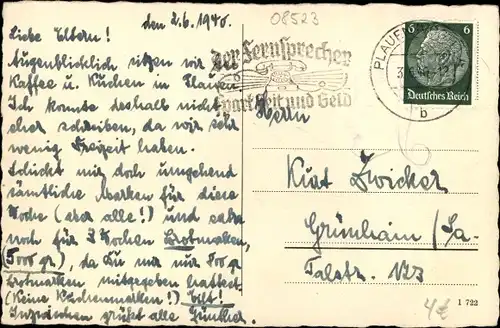 den 2.6.1940.
08523
Liebe Eltern!
Augenblicklich sitzen wir bei
Kaffee u. Kuchen in Plauen.
Ich konnte deshalb nicht
eher schreiben, da wir sehr
wenig Freizeit haben.
Schickt mir doch umgehend
sämtliche Marken für diese
Woche (aber alle!) und
noch für 3 Wochen Brotmarken,
da Du mir nur 800 gr.
Brotmarken mitgegeben hattest.
(Keine Kuchenmarken!) Eilt!
Inzwischen grüßt alle Günther.
Der Fernsprecher
spart Zeit und Geld
PLAUEN
b
6 6
Deutsches Reich
Herrn
6
Kurt Zwicker
Grünhain/Sa.
Talstr. 123
1 722
4€